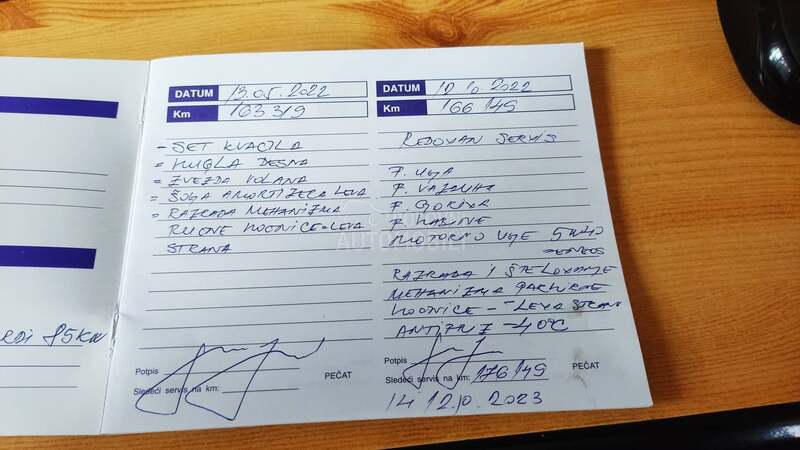 RDI 85KW
DATUM 13.05.2022
Km 163 319
- SET KVAČILA
= KUGLA DESNA
= ZVEZDA VOLANA
= ŠOLJA AMORTIZERA LEVA
= RAZRADA MEHANIZMA
RUČNE KOČNICE - LEVA
STRANA
Potpis
PEČAT
Sledeći servis na km:
DATUM 12.10.2022
Km 166 149
REDOVAN SERVIS
F. ULJA
F. VAZDUHA
F. GORIVA
F. KABINE
MOTORNO ULJE 5W40
RAZRADA I ŠTELOVANJE
MEHANIZMA PARKIRNE
KOČNICE - LEVA STRANA
ANTIFRIZ -40°C
Potpis
PEČAT
Sledeći servis na km: 176 149
12.10.2023